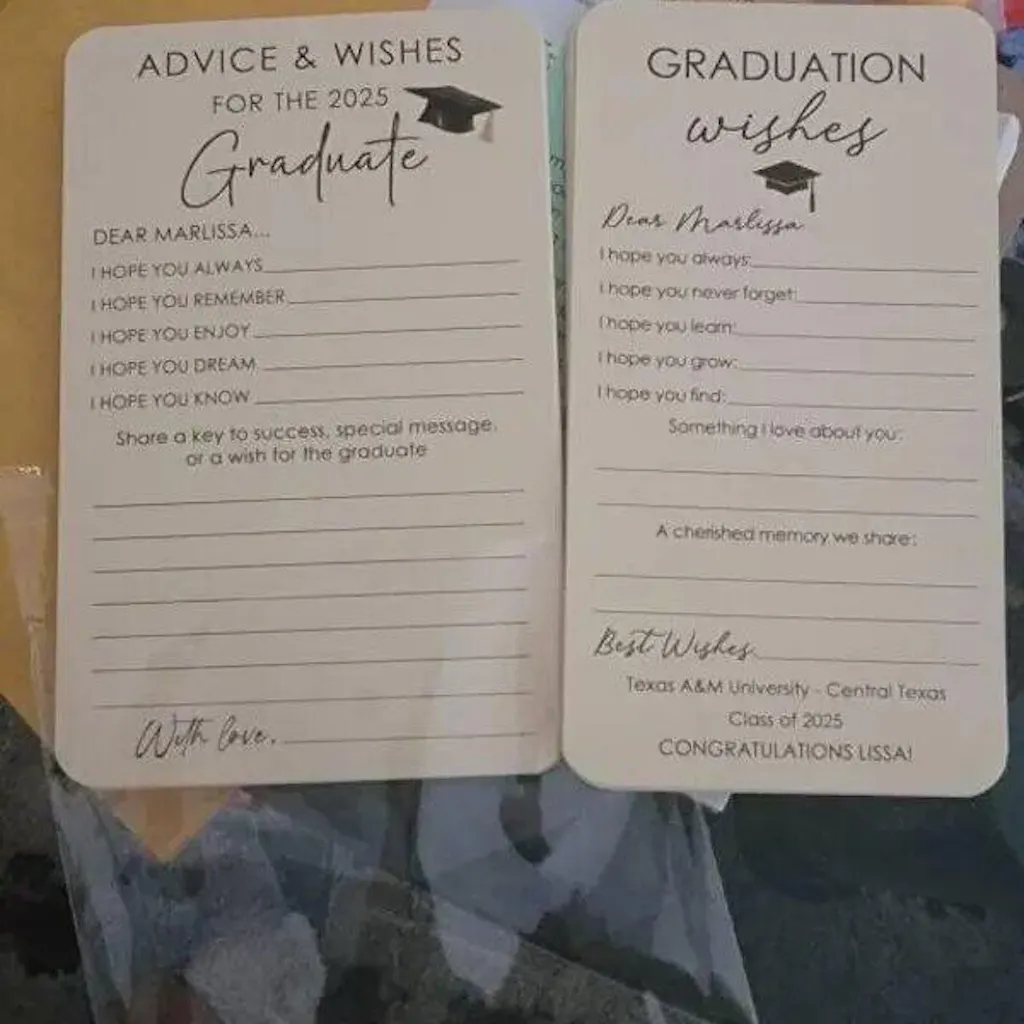 ADVICE & WISHES
FOR THE 2025
Graduate
DEAR MARLISSA...
I HOPE YOU ALWAYS
I HOPE YOU REMEMBER
I HOPE YOU ENJOY
I HOPE YOU DREAM
I HOPE YOU KNOW
Share a key to success, special message,
or a wish for the graduate
With love,
GRADUATION
wishes
Dear Marlissa
I hope you always:
I hope you never forget:
I hope you learn:
I hope you grow:
I hope you find:
Something I love about you:
A cherished memory we share:
Best Wishes
Texas A&M University - Central Texas
Class of 2025
CONGRATULATIONS LISSA!